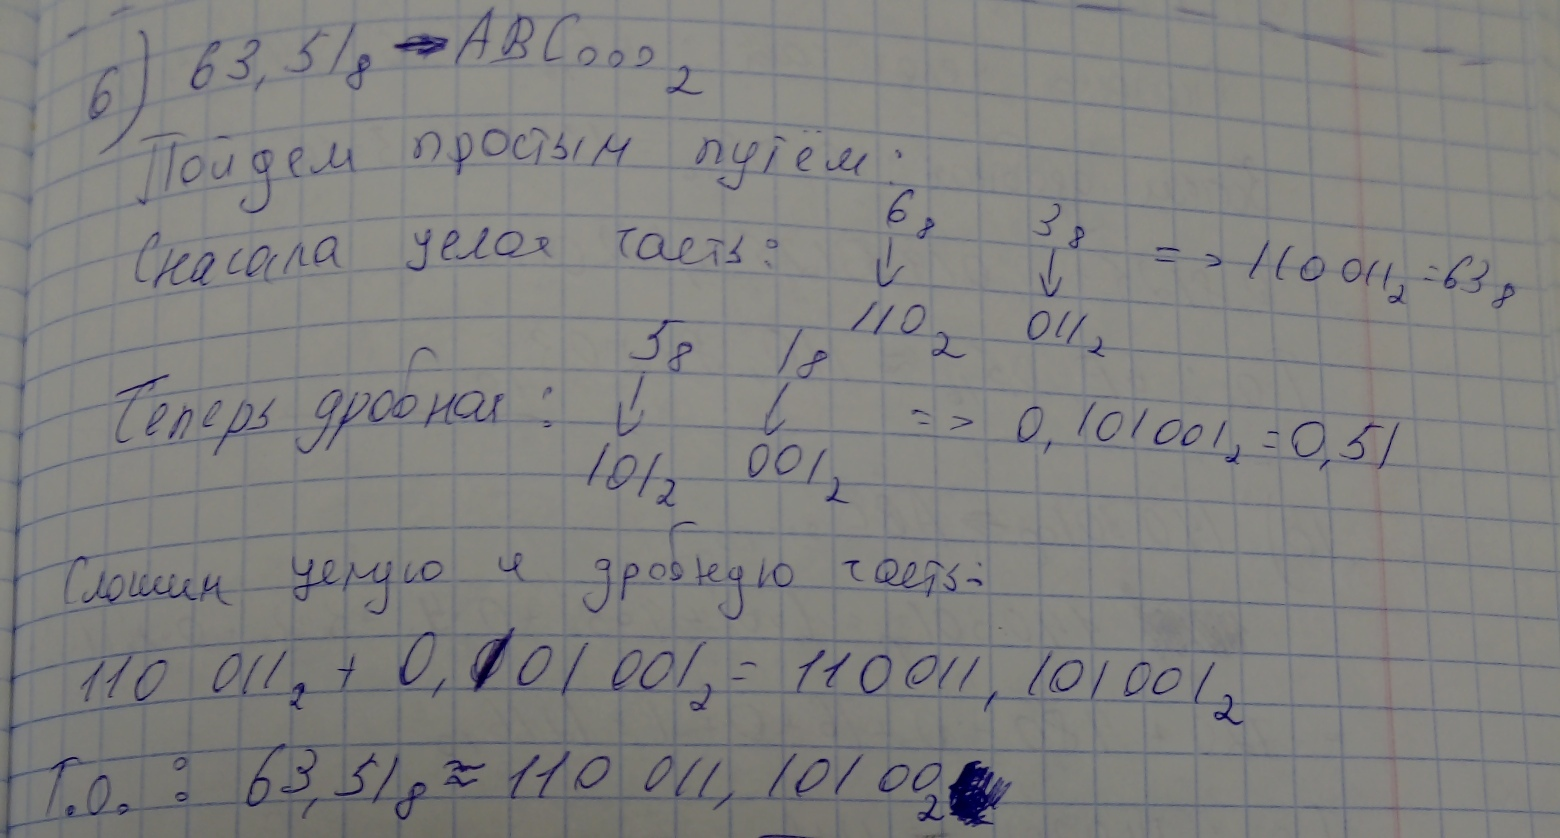 6) 63,51₈ → ABC₀₀₀ ₂
Пойдем простым путём:
Сначала целая часть: 6₈ 3₈ => 110 011₂ = 63₈
↓ ↓
110₂ 011₂
Теперь дробная: 5₈ 1₈ => 0,101001₂ = 0,51
↓ ↓
101₂ 001₂
Сложим целую и дробную часть:
110 011₂ + 0,101 001₂ = 110011,101001₂
Т.о.: 63,51₈ ≈ 110 011,101 00₂